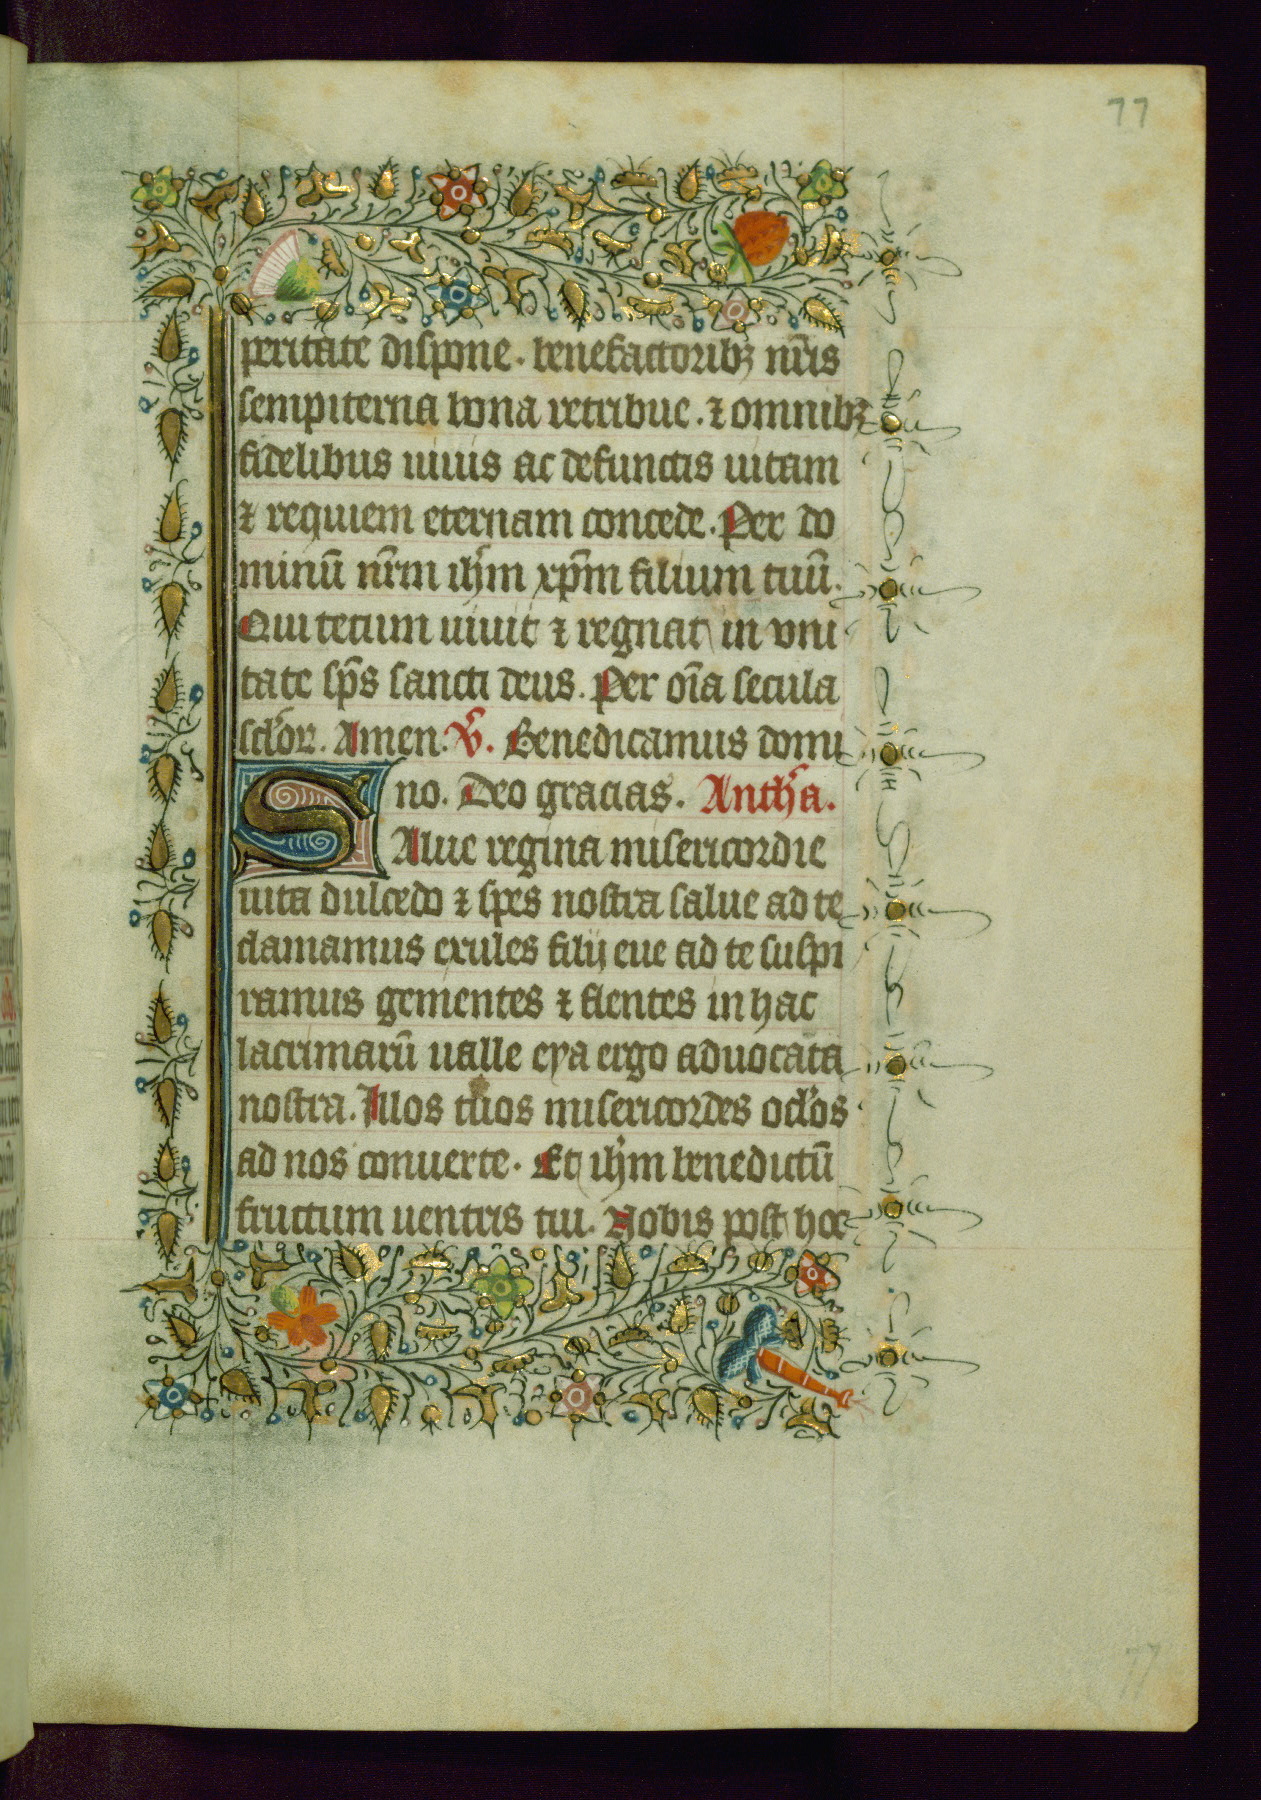 77
peritate dispone. benefactoribꝫ nr̄is
sempiterna bona retribue. ⁊ omnibꝫ
fidelibus uiuis ac defunctis uitam
⁊ requiem eternam concede. Per do
minū nr̄m ihm̄ xp̄m filium tuū.
Qui tecum uiuit ⁊ regnat in vni
tate sp̄s sancti deus. Per oīa secula
sclōr. Amen. V̄. Benedicamus domi
no. Deo gracias. Anth̄a.
SAlue regina misericordie
uita dulcedo ⁊ spes nostra salue ad te
clamamus exules filij eue ad te suspi
ramus gementes ⁊ flentes in hac
lacrimarū ualle eya ergo aduocata
nostra. Illos tuos misericordes oclōs
ad nos conuerte. Et ihm̄ benedictū
fructum uentris tui. Nobis post hoc
77